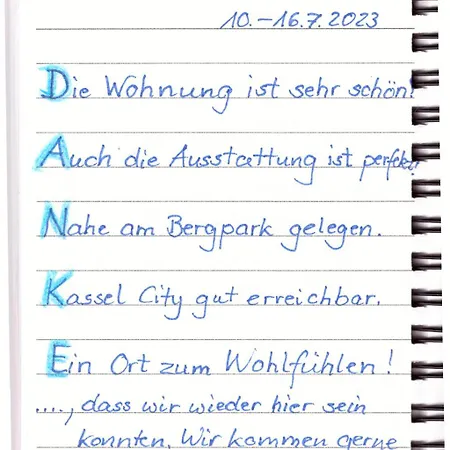 10.–16.7.2023
Die Wohnung ist sehr schön!
Auch die Ausstattung ist perfekt!
Nahe am Bergpark gelegen.
Kassel City gut erreichbar.
Ein Ort zum Wohlfühlen!
...., dass wir wieder hier sein
konnten. Wir kommen gerne